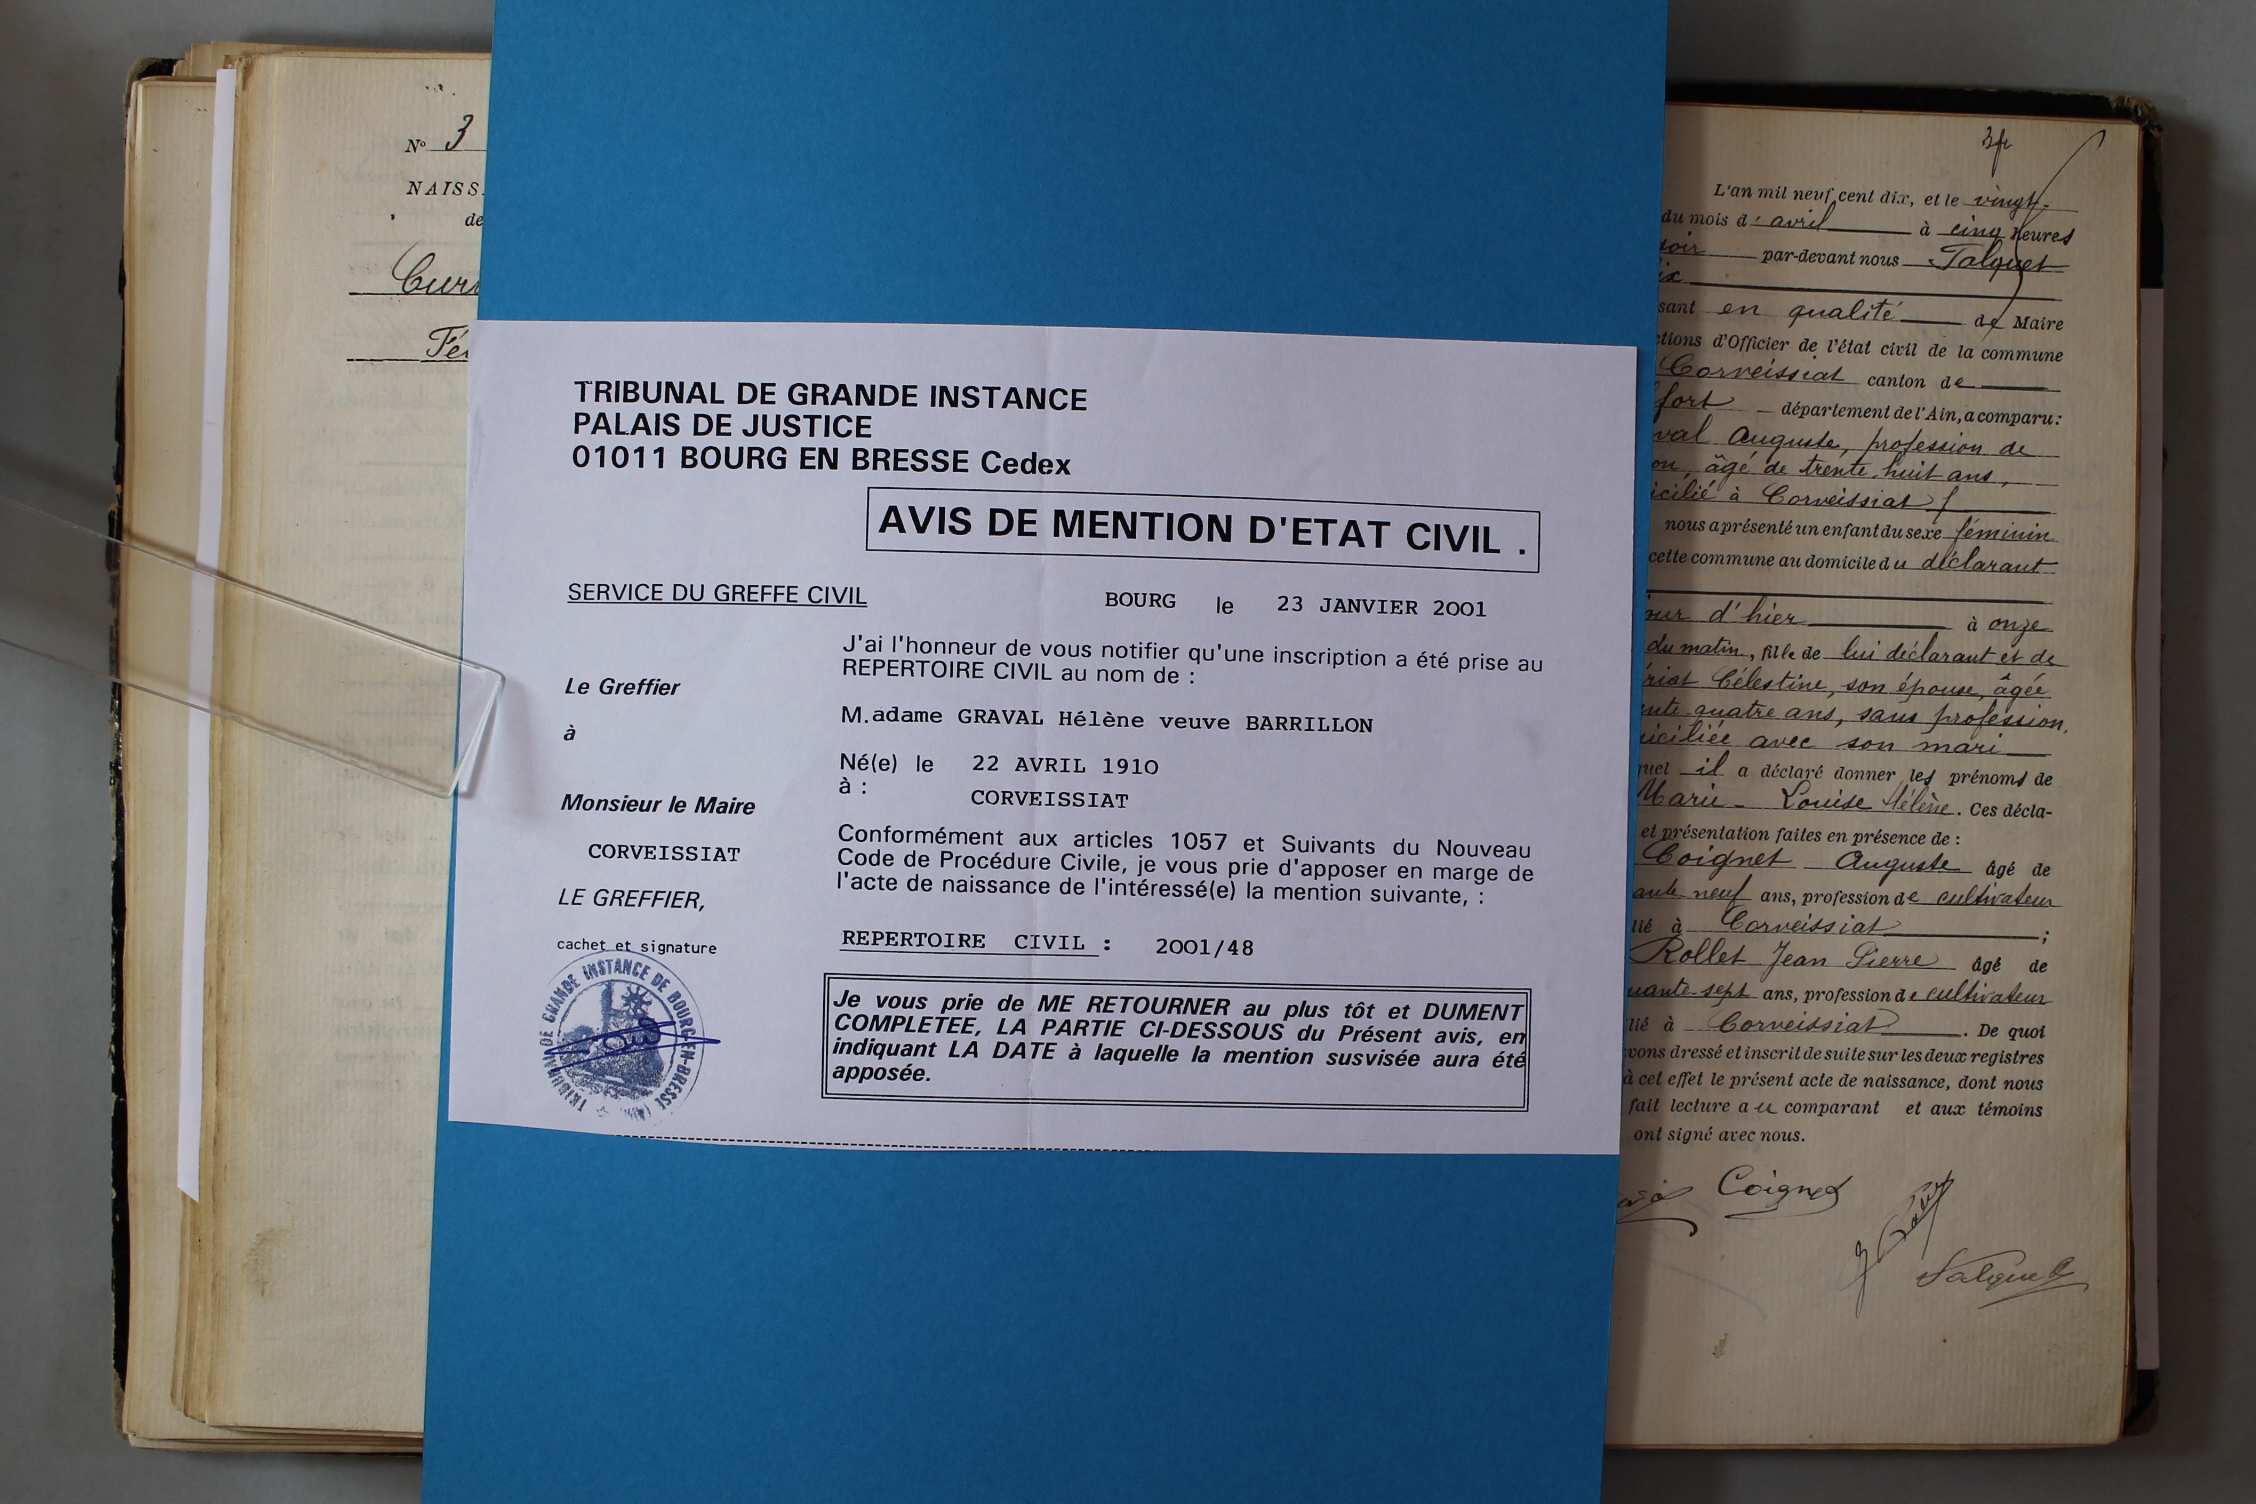 N° 3
NAISS
de
Fé
TRIBUNAL DE GRANDE INSTANCE
PALAIS DE JUSTICE
01011 BOURG EN BRESSE Cedex
AVIS DE MENTION D'ETAT CIVIL .
SERVICE DU GREFFE CIVIL
BOURG le 23 JANVIER 2001
J'ai l'honneur de vous notifier qu'une inscription a été prise au
REPERTOIRE CIVIL au nom de :
Le Greffier
à
Monsieur le Maire
CORVEISSIAT
LE GREFFIER,
cachet et signature
TRIBUNAL DE GRANDE INSTANCE DE BOURG-EN-BRESSE
M.adame GRAVAL Hélène veuve BARRILLON
Né(e) le 22 AVRIL 1910
à :
CORVEISSIAT
Conformément aux articles 1057 et Suivants du Nouveau
Code de Procédure Civile, je vous prie d'apposer en marge de
l'acte de naissance de l'intéressé(e) la mention suivante, :
REPERTOIRE CIVIL : 2001/48
Je vous prie de ME RETOURNER au plus tôt et DUMENT
COMPLETEE, LA PARTIE CI-DESSOUS du Présent avis, en
indiquant LA DATE à laquelle la mention susvisée aura été
apposée.
L'an mil neuf cent dix, et le vingt-
du mois d'avril à cinq heures
soir par-devant nous Talquet
ix
sant en qualité de Maire
ctions d'Officier de l'état civil de la commune
Corveissiat canton de
fort département de l'Ain, a comparu :
val Auguste, profession de
on, âgé de trente huit ans,
icilié à Corveissiat
nous a présenté un enfant du sexe féminin
cette commune au domicile du déclarant
our d'hier à onze
du matin, fille de lui déclarant et de
riat Célestine, son épouse, âgée
nte quatre ans, sans profession,
iciliée avec son mari
quel il a déclaré donner les prénoms de
Marie-Louise Hélène. Ces décla-
et présentation faites en présence de :
Coignet Auguste âgé de
ante neuf ans, profession de cultivateur
lié à Corveissiat ;
Rollet Jean Pierre âgé de
uante-sept ans, profession de cultivateur
lié à Corveissiat. De quoi
vons dressé et inscrit de suite sur les deux registres
à cet effet le présent acte de naissance, dont nous
fait lecture au comparant et aux témoins
ont signé avec nous.
Coignet
Talquet